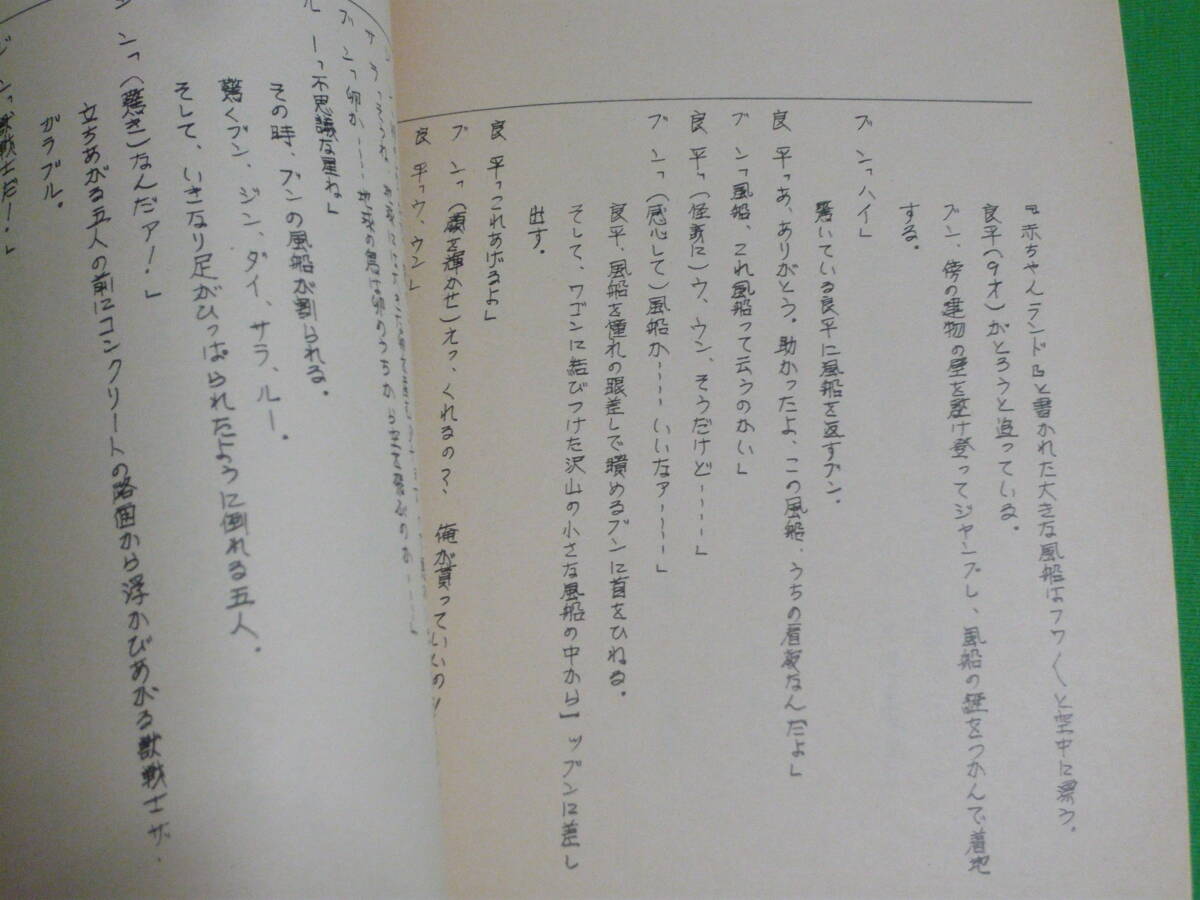 『赤ちゃんランド』と書かれた大きな風船はフワ〱と空中に漂う。
良平(9才)がとろうと追っている。
ブン、傍の建物の壁を駆け登ってジャンプし、風船の紐をつかんで着地
する。
ブ ン「ハイ」
驚いている良平に風船を返すブン。
良 平「あ、ありがとう。助かったよ、この風船、うちの看板なんだよ」
ブ ン「風船、これ風船って云うのかい」
良 平「(怪訝に)ウ、ウン、そうだけど……」
ブ ン「(感心して)風船か……いいなァ……」
良平、風船を憧れの眼差しで瞶めるブンに首をひねる。
そして、ワゴンに結びつけた沢山の小さな風船の中から1ツブンに差し
出す。
良 平「これあげるよ」
ブ ン「(顔を輝かせ)えっ、くれるの?、俺が貰っていいの
良 平「ウ、ウン」
サ ラ「そうね、地球に
ブ ン「卵か……地球の鳥は卵のうちから空を飛ぶのか……」
ル ー「不思議な星ね」
その時、ブンの風船が割られる。
驚くブン、ジン、ダイ、サラ、ルー。
そして、いきなり足がひっぱられたように倒れる五人。
ジ ン「(驚き)なんだァ!」
立ちあがる五人の前にコンクリートの路面から浮かびあがる獣戦士ザ・
ガラブル。
ジ ン「獣戦士だ!」